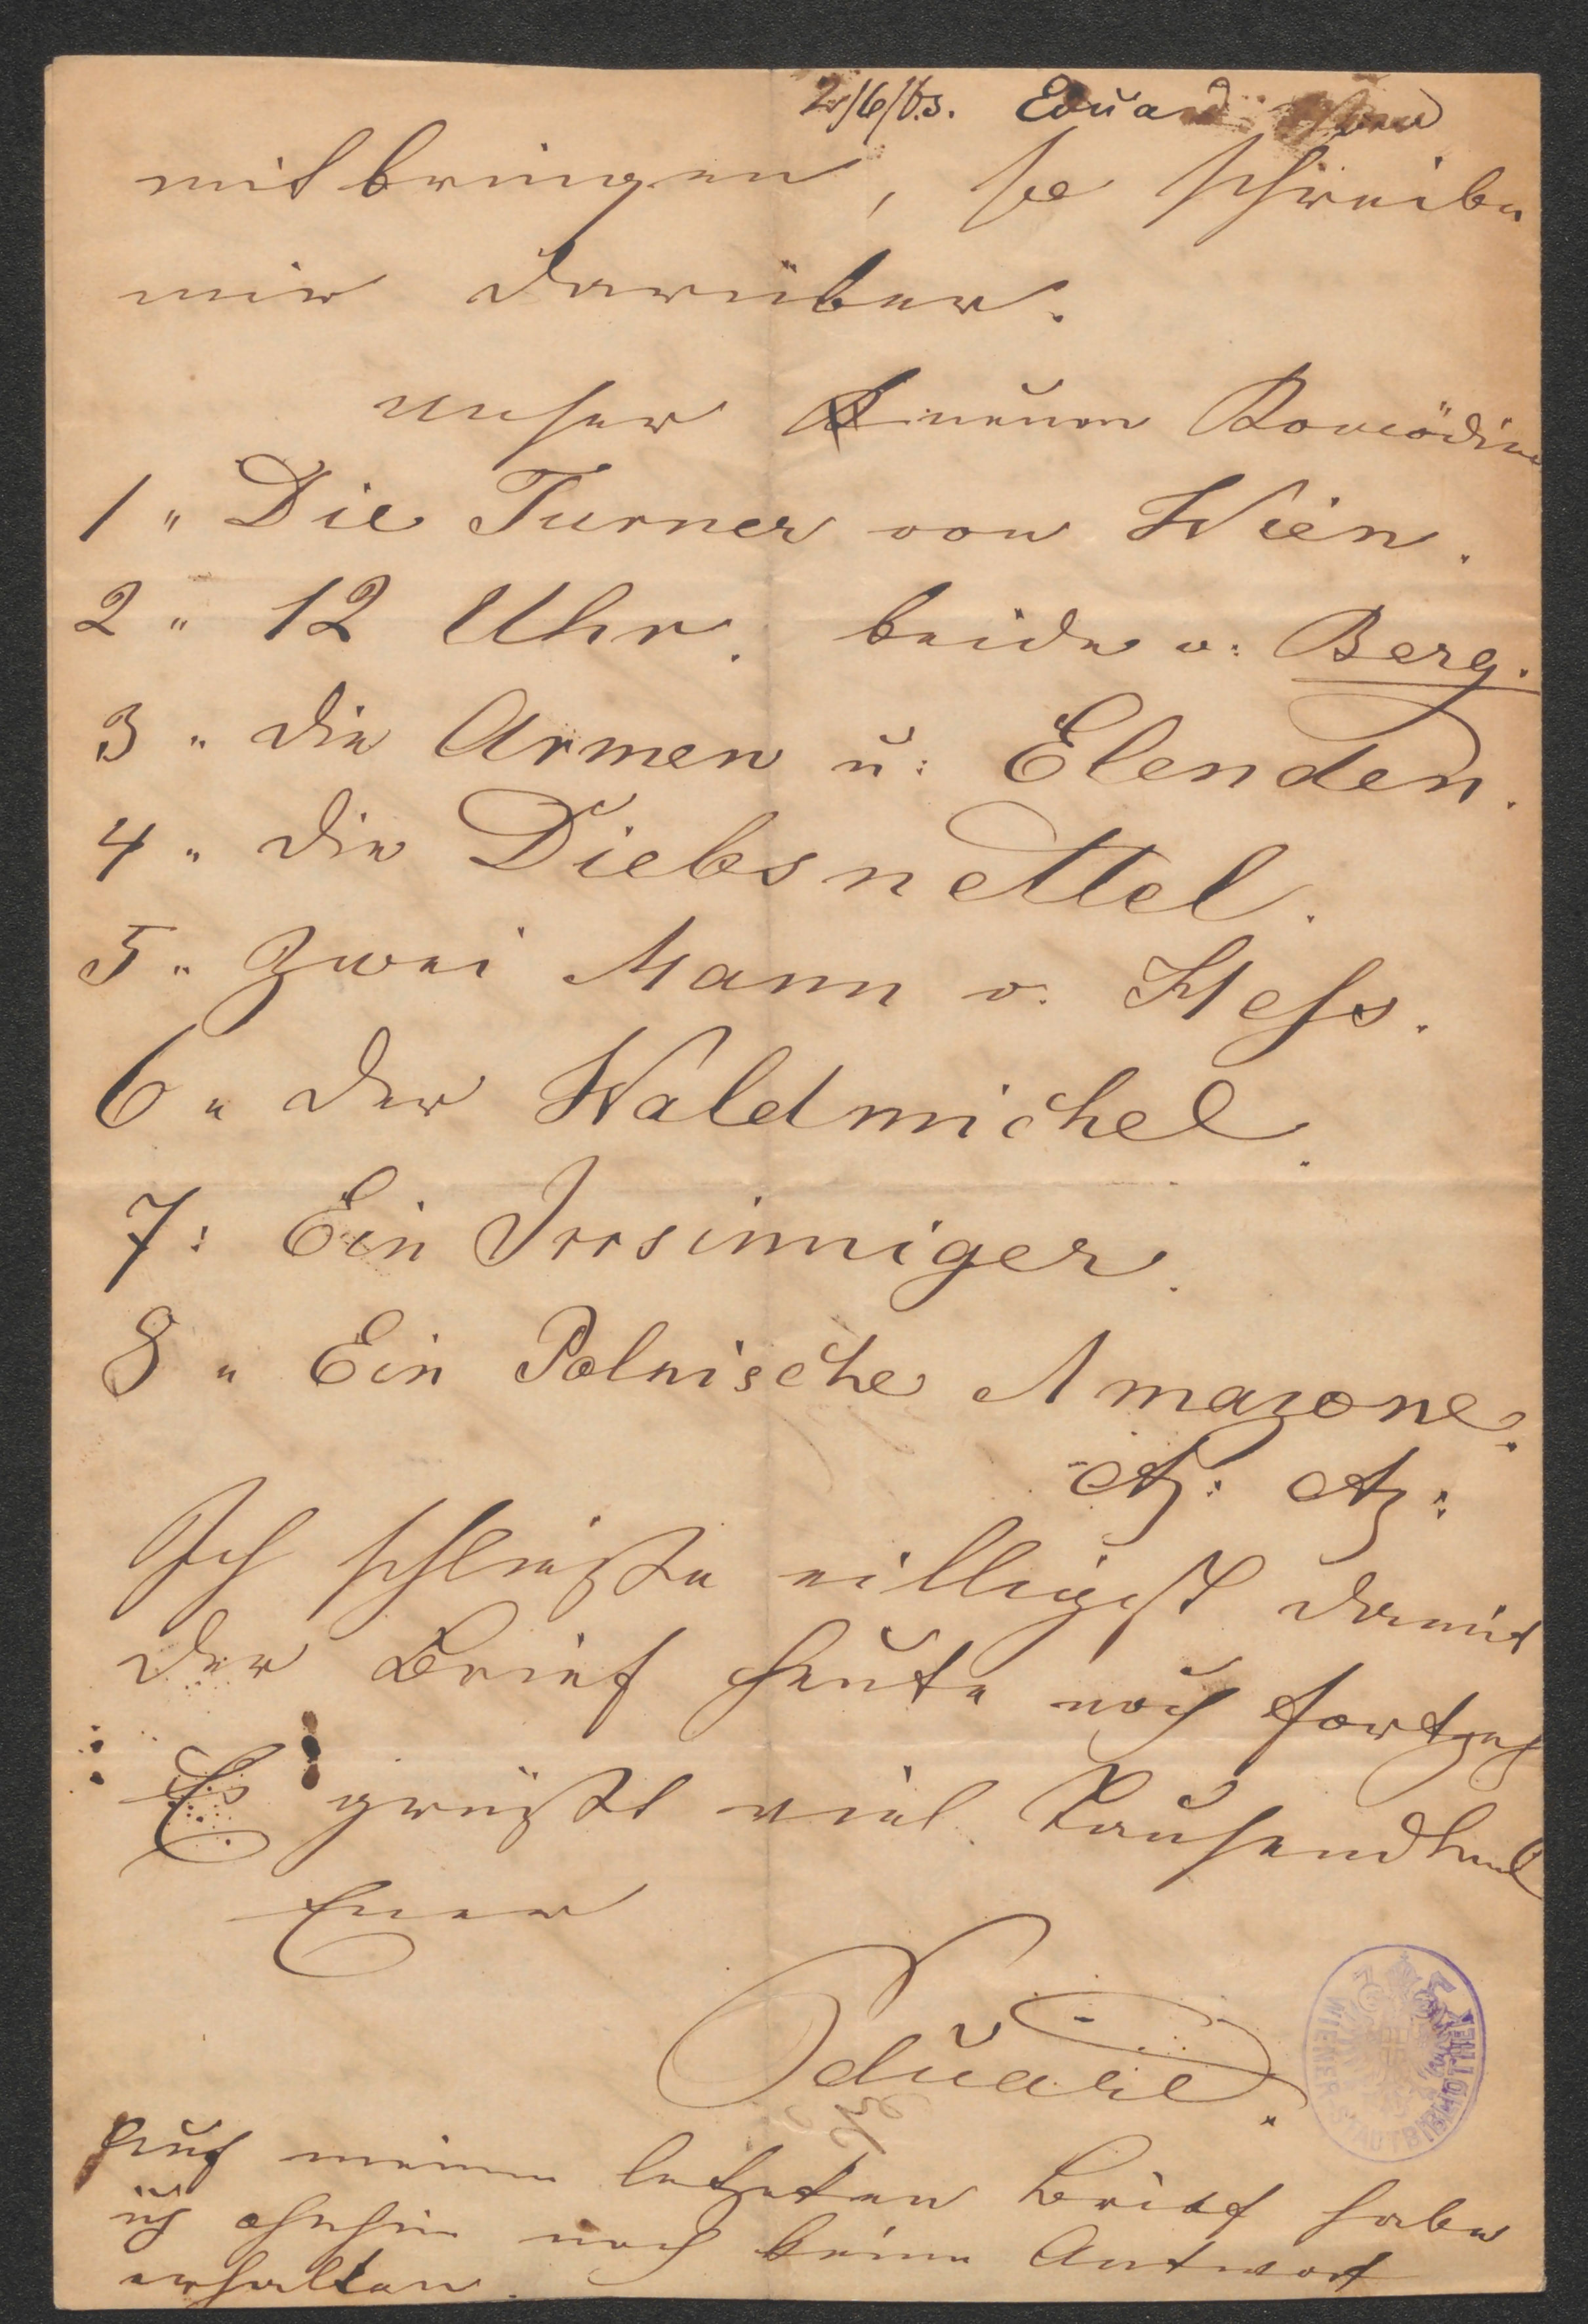 2/6/63. Eduard
mitbringen, so schreibe
mir darüber.
unser neuen Komödien
1 " Die Turner von Wien.
2 " 12 Uhr. beide v: Berg.
3 " die Armen u: Elenden.
4 " die Diebsnettel.
5 " Zwei Mann v. Hess.
6 " der Waldmichel.
7 : Ein Irrsinniger.
8 " Ein Polnische Amazone.
etz: etz:
Ich schließe eilligst damit
der Brief heute noch fortgeh
Es grüßt viel Tausendmal
Euer
Eduard.
Auf meinen letzten Brief habe
ich ohnhin noch keine Antwort
erhalten.
WIENER STADTBIBLIOTHEK